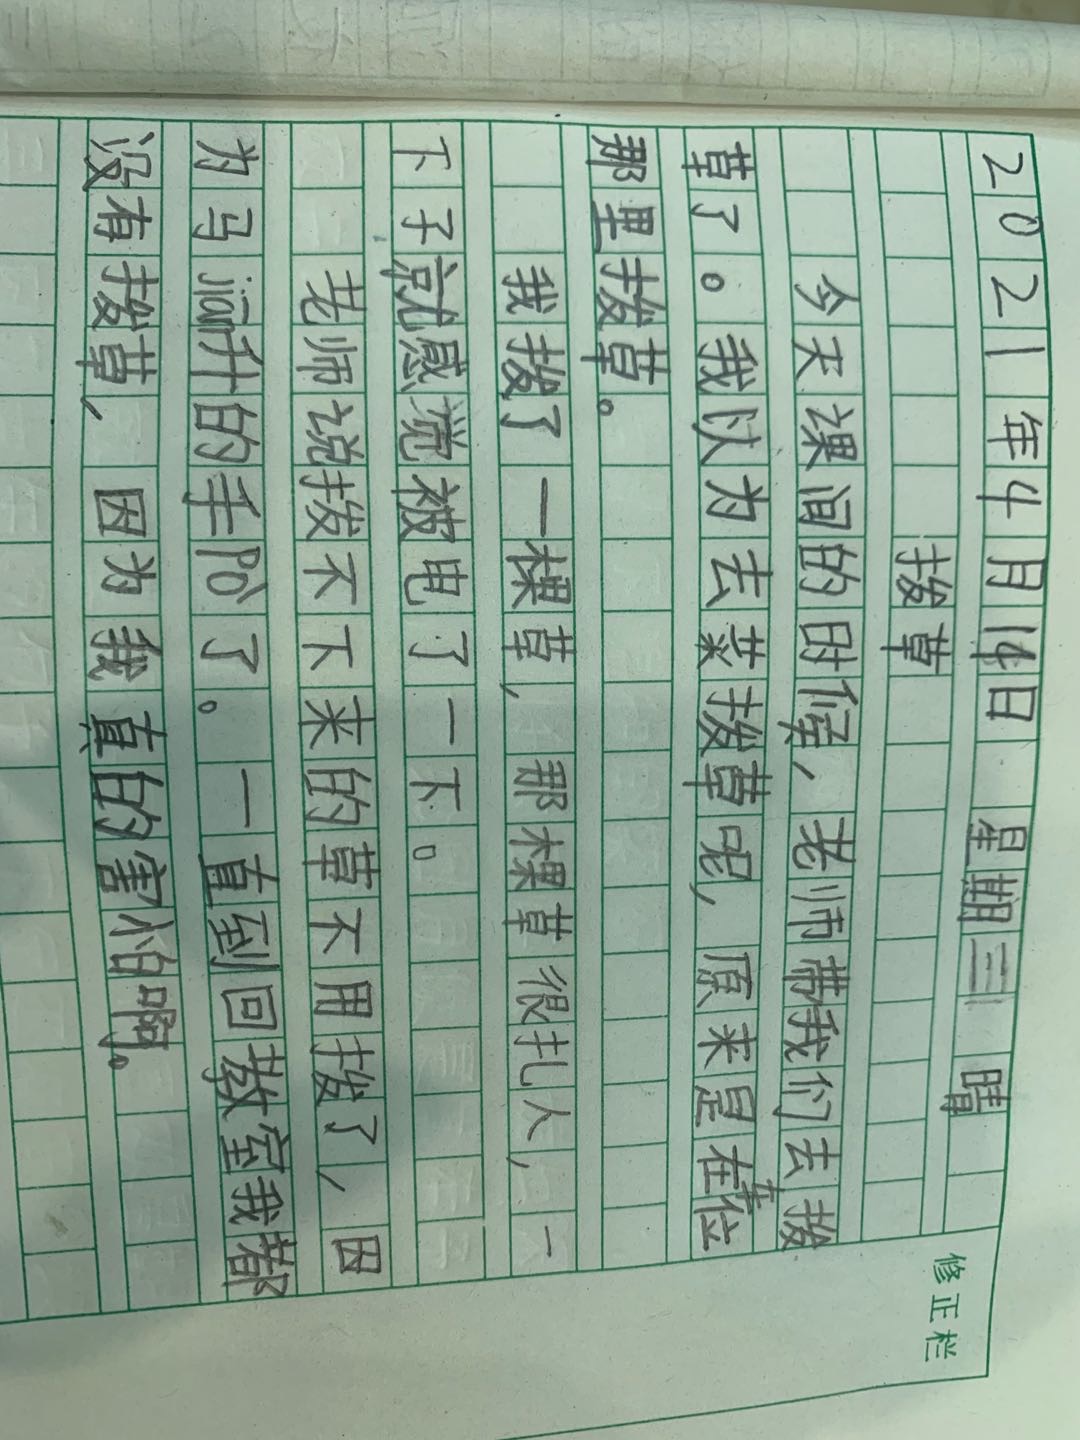 2021年4月14日 星期三 晴
拨草
今天课间的时候，老师带我们去拨
草了。我以为去菜拨草呢，原来是在车位
那里拨草。
我拨了一棵草，那棵草很扎人，一
下子就感觉被电了一下。
老师说拨不下来的草不用拨了，因
为马jiān升的手pò了。一直到回教室我都
没有拨草，因为我真的害怕啊。
修正栏